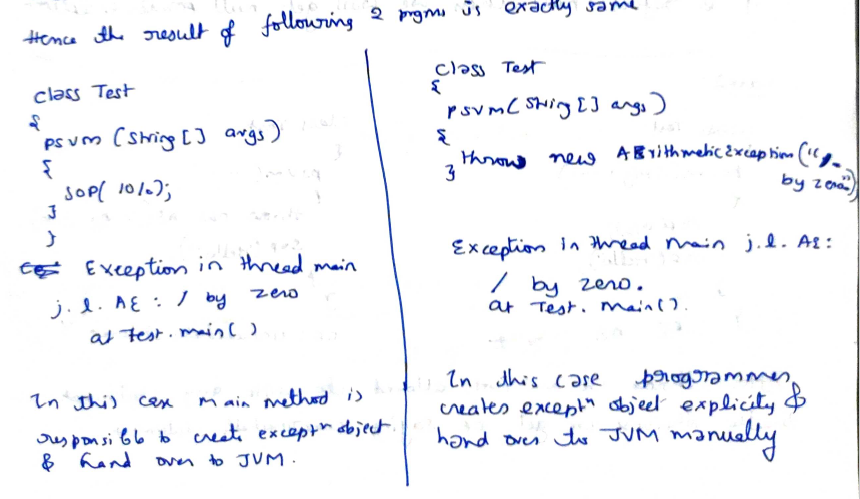 Hence the result of following 2 prgms is exactly same
class Test
{
psvm (String [] args)
{
SOP( 10/0);
}
}
Exception in thread main
j.l. AE : / by zero
at Test.main( )
In this case main method is
responsible to create exceptn object
& hand over to JVM.
class Test
{
psvm( String [] args)
{
throw new Arithmetic Exception ("/
by zero")
}
Exception in thread main j.l. AE:
/ by zero.
at Test. main().
In this case programmer
creates exceptn object explicity &
hand over to JVM manually